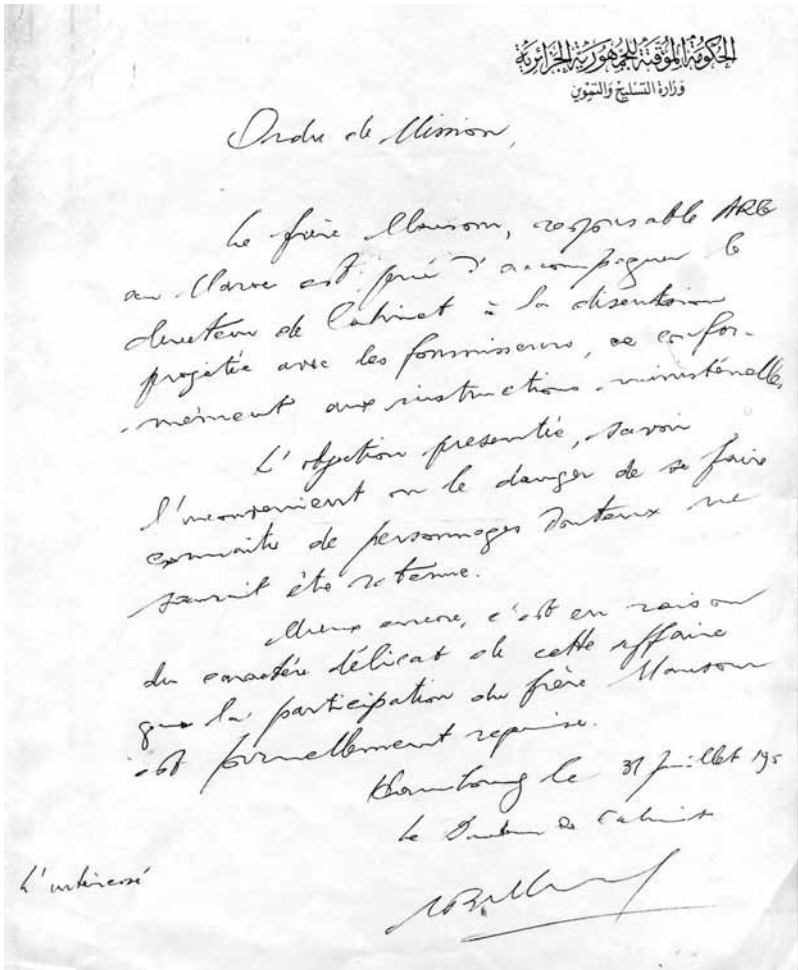 الحكومة المؤقتة للجمهورية الجزائرية
وزارة التسليح والتموين
Ordre de Mission,
Le frère Mansour, responsable
au Maroc est prié d'accompagner le
directeur de Cabinet à la discussion
projetée avec les fournisseurs, ce confor-
mément aux instructions ministérielles.
L'objection présentée, savoir
l'inconvénient ou le danger de se faire
connaître de personnages douteux ne
saurait être retenue.
Mieux encore, c'est en raison
du caractère délicat de cette affaire
que la participation du frère Mansour
est formellement requise.
Hambourg le 31 juillet 195
Le Directeur de Cabinet
L'intéressé